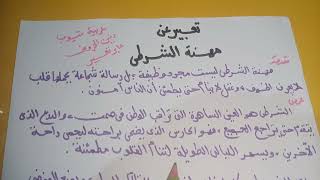 تعبير عن
مهنة الشرطي
مقدمة
مهنة الشرطي ليست مجرد وظيفة بل رسالة شجاعة يحملها قلب
لا يعرف الخوف وعقل لا ينام حتى يطمئن أن الناس آمنون.
عرض
الشرطي هو العين الساهرة التي تراقب الوطن في صمت والدرع الذي
يتقدم حين يتراجع الجميع فهو الحارس الذي يضحي براحته ليصنع راحة
الآخرين ويسهر الليالي الطويلة لتنام القلوب مطمئنة